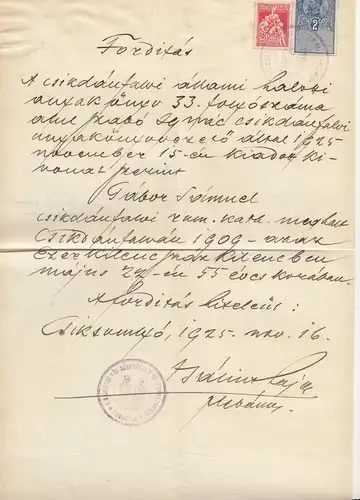 Fordítás
A csikdánfalvi állami halotti
anyakönyv 33. folyószáma
alatt Szabó Ignác csikdánfalvi
anyakönyvvezető által 1925
november 15-én kiadott ki-
vonat szerint
Tábor Sámuel
csikdánfalvi róm. kath. meghalt
Csikdánfalván 1909 - azaz
Ezerkilencszázkilencben
május 24-én 55 éves korában.
A fordítás hiteléül:
Csikszereda, 1925. nov. 16.
2